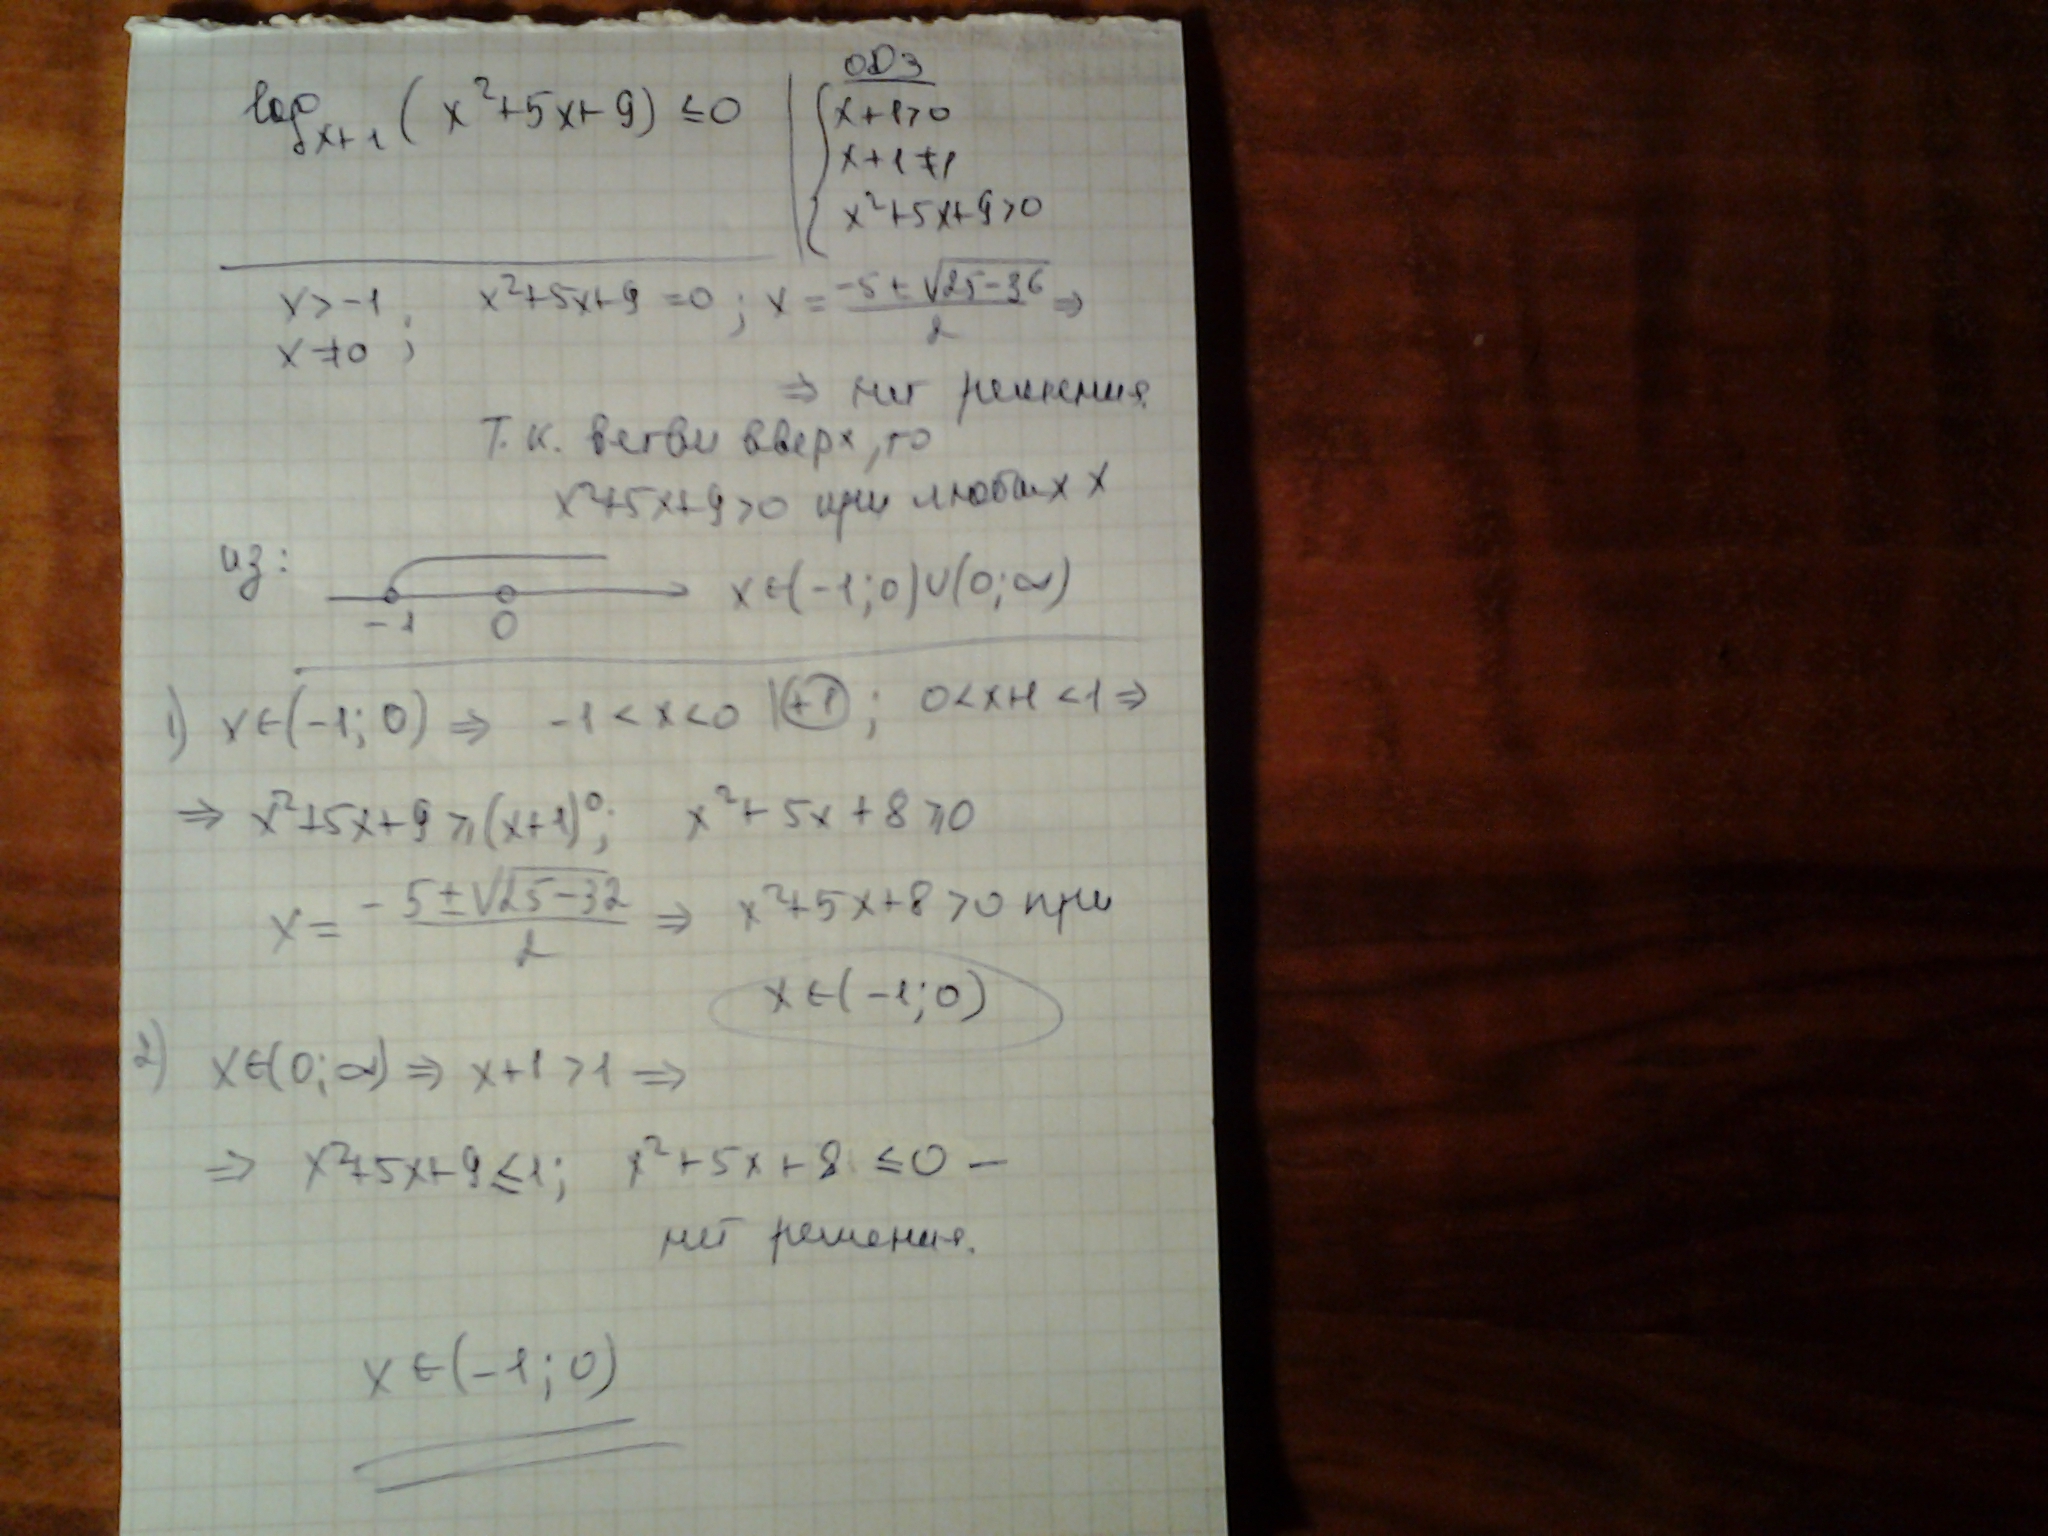 log_{x+1}(x²+5x+9) ≤0
ОДЗ
x+1>0
x+1≠1
x²+5x+9>0
x>-1
x≠0;
x²+5x+9=0; x = (-5±√(25-36))/2 ⇒
⇒ нет решения.
Т.к. ветви вверх, то
x²+5x+9>0 при любых x
из:
-1 0
x∈(-1;0)∪(0;∞)
1) x∈(-1;0) ⇒ -1<x<0 |+1; 0<x+1<1 ⇒
⇒ x²+5x+9⩾(x+1)⁰; x²+5x+8⩾0
x = (-5±√(25-32))/2 ⇒ x²+5x+8>0 при
x∈(-1;0)
2) x∈(0;∞) ⇒ x+1>1 ⇒
⇒ x²+5x+9≤1; x²+5x+8 ≤0 –
нет решения.
x∈(-1;0)